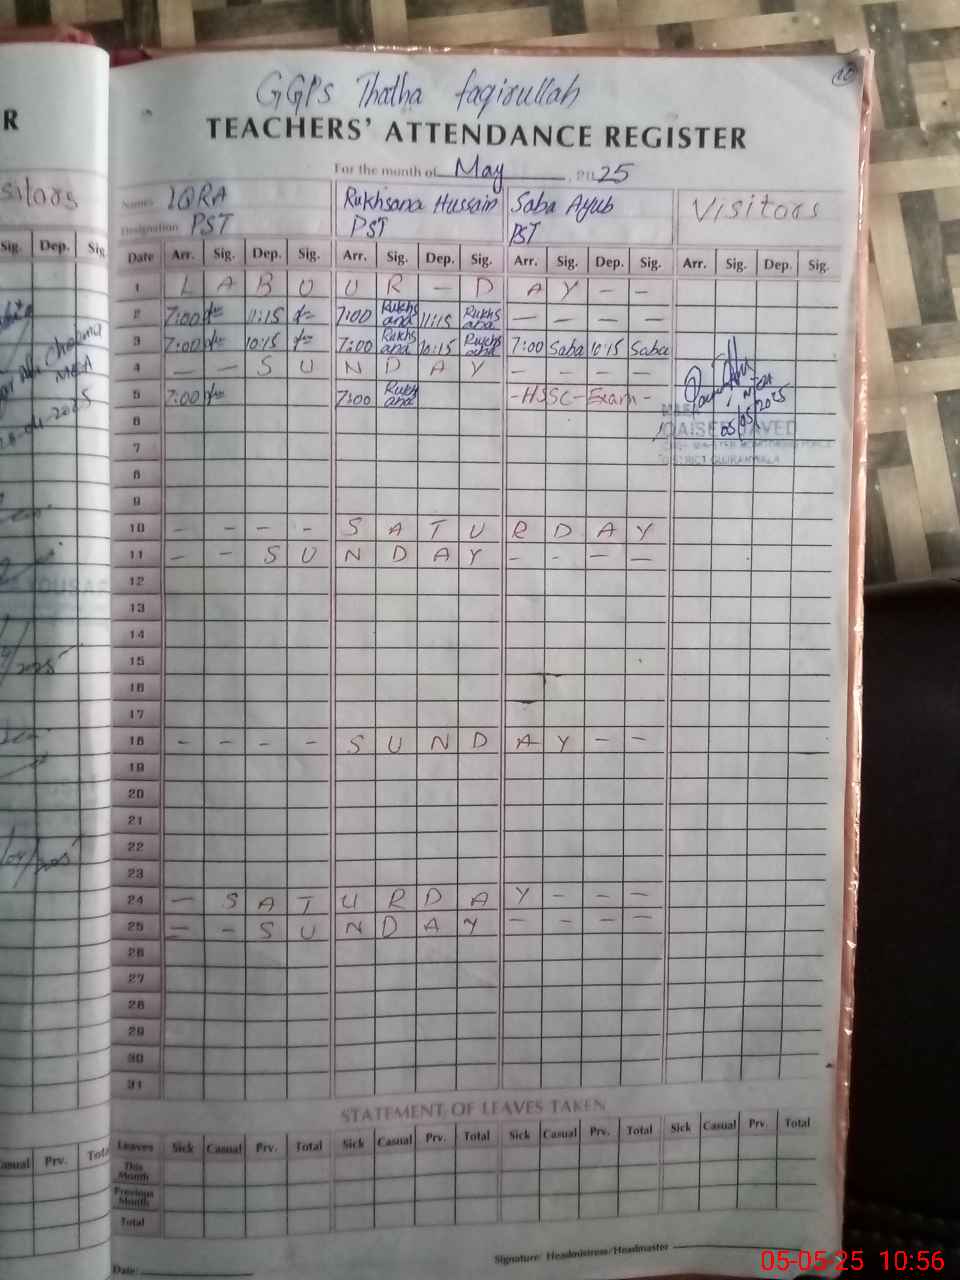 GGPS Thatha faqirullah
10
TEACHERS' ATTENDANCE REGISTER
For the month of May, 2025
Names IQRA Rukhsana Hussain Saba Ayub Visitors
Designation PST PST PST
Date Arr. Sig. Dep. Sig. Arr. Sig. Dep. Sig. Arr. Sig. Dep. Sig. Arr. Sig. Dep. Sig.
1 L A B O U R - D A Y - -
2 7:00 11:15 7:00 Rukhsana 11:15 Rukhsana - - - -
3 7:00 10:15 7:00 Rukhsana 10:15 Rukhsana 7:00 Saba 10:15 Saba
4 - - S U N D A Y - - - -
5 7:00 7:00 Rukhsana -HSSC-Exam-
05/05/2025
6
7
DISTRICT GUJRANWALA
8
9
10 - - - - S A T U R D A Y
11 - - S U N D A Y - - - -
12
13
14
15
16
17
18 - - - - S U N D A Y - -
19
20
21
22
23
24 - S A T U R D A Y - - -
25 - - S U N D A Y - - - -
26
27
28
29
30
31
STATEMENT OF LEAVES TAKEN
Leaves Sick Casual Prv. Total Sick Casual Prv. Total Sick Casual Prv. Total Sick Casual Prv. Total
This Month
Previous Month
Total
Date: Signature: Headmistress/Headmaster
05-05-25 10:56